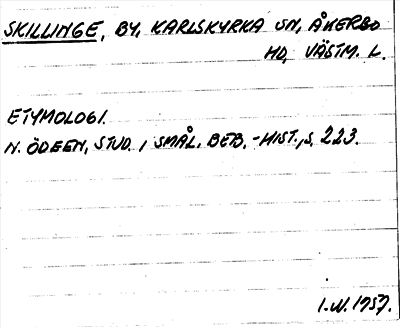 SKILLINGE, BY, KARLSKYRKA SN, ÅKERBO
HD, VÄSTM. L.
ETYMOLOGI.
N. ÖDEEN, STUD. I SMÅL. BEB.-HIST., S. 223.
I.W. 1957.